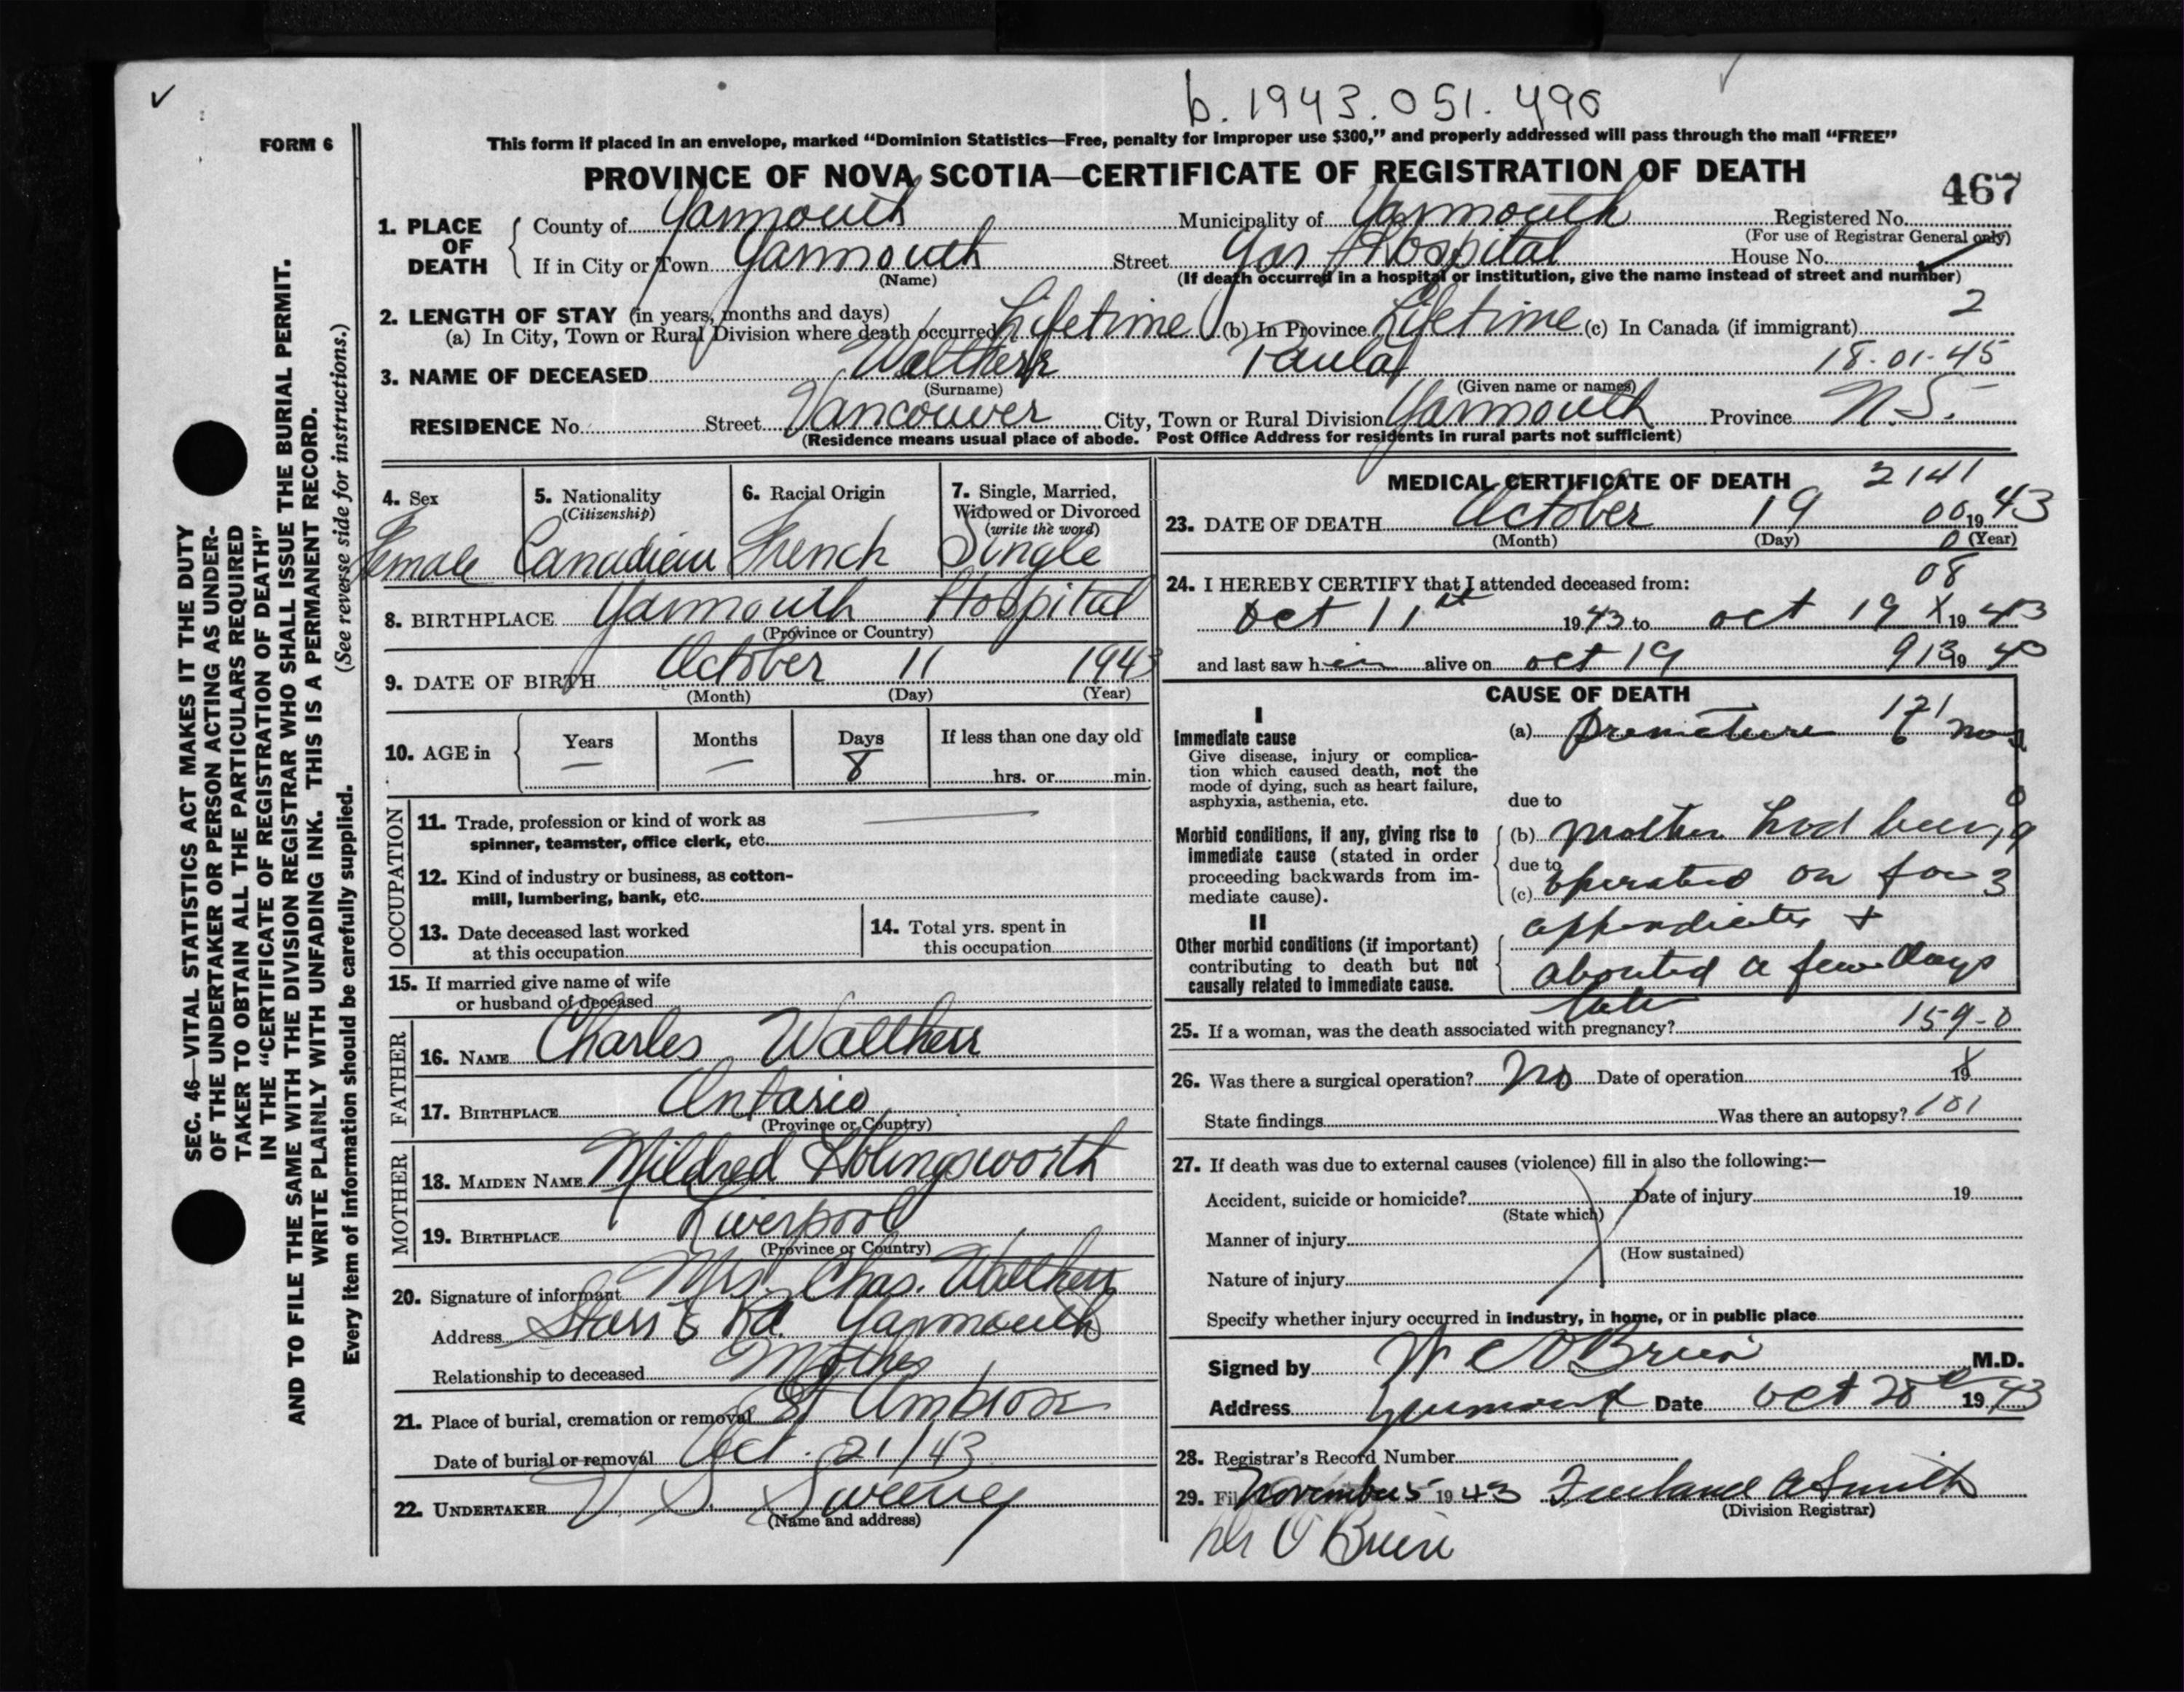 b. 1943. 051. 490
FORM 6
This form if placed in an envelope, marked “Dominion Statistics—Free, penalty for improper use $300,” and properly addressed will pass through the mail “FREE”
PROVINCE OF NOVA SCOTIA—CERTIFICATE OF REGISTRATION OF DEATH
467
1. PLACE OF DEATH County of Yarmouth Municipality of Yarmouth Registered No.
(For use of Registrar General only)
If in City or Town Yarmouth Street Yar Hospital House No.
(Name) (If death occurred in a hospital or institution, give the name instead of street and number)
2. LENGTH OF STAY (in years, months and days) 2
(a) In City, Town or Rural Division where death occurred Lifetime (b) In Province Lifetime (c) In Canada (if immigrant)
3. NAME OF DECEASED Waltherr Paula 18-01-45
(Surname) (Given name or names)
RESIDENCE No. Street Vancouver City, Town or Rural Division Yarmouth Province N.S.
(Residence means usual place of abode. Post Office Address for residents in rural parts not sufficient)
4. Sex 5. Nationality 6. Racial Origin 7. Single, Married,
(Citizenship) Widowed or Divorced
(write the word)
Female Canadian French Single
8. BIRTHPLACE Yarmouth Hospital
(Province or Country)
9. DATE OF BIRTH October 11 1943
(Month) (Day) (Year)
10. AGE in Years Months Days If less than one day old
— — 8 hrs. or min.
OCCUPATION
11. Trade, profession or kind of work as
spinner, teamster, office clerk, etc.
12. Kind of industry or business, as cotton-
mill, lumbering, bank, etc.
13. Date deceased last worked 14. Total yrs. spent in
at this occupation this occupation
15. If married give name of wife
or husband of deceased
FATHER
16. NAME Charles Waltherr
17. BIRTHPLACE Ontario
(Province or Country)
MOTHER
18. MAIDEN NAME Mildred Holingsworth
19. BIRTHPLACE Liverpool
(Province or Country)
20. Signature of informant Mrs. Chas. Waltherr
Address Starr's Rd. Yarmouth
Relationship to deceased Mother
21. Place of burial, cremation or removal St Ambrose
Date of burial or removal Oct. 21/43
22. UNDERTAKER V S. Sweeney
(Name and address)
MEDICAL CERTIFICATE OF DEATH 2141
23. DATE OF DEATH October 19 00 1943
(Month) (Day) 0 (Year)
08
24. I HEREBY CERTIFY that I attended deceased from:
Oct 11th 1943 to oct 19 X 1943
and last saw h alive on oct 19 913 19 43
CAUSE OF DEATH
I
Immediate cause
Give disease, injury or complica-
tion which caused death, not the
mode of dying, such as heart failure,
asphyxia, asthenia, etc.
(a) Premature 6 mos
121
due to
Morbid conditions, if any, giving rise to
immediate cause (stated in order
proceeding backwards from im-
mediate cause).
(b) mother had been
due to
(c) operated on for
0
9
3
II
Other morbid conditions (if important)
contributing to death but not
causally related to immediate cause.
appendicitis +
aborted a few days
later
25. If a woman, was the death associated with pregnancy? 159-0
26. Was there a surgical operation? No Date of operation 19 X
State findings Was there an autopsy? 101
27. If death was due to external causes (violence) fill in also the following:—
Accident, suicide or homicide? Date of injury 19
(State which)
Manner of injury
(How sustained)
Nature of injury
Specify whether injury occurred in industry, in home, or in public place
Signed by W C O'Brien M.D.
Address Yarmouth Date Oct 20th 1943
28. Registrar's Record Number
29. Fil November 5 1943 Freeland A Smith
(Division Registrar)
Dr O'Brien
SEC. 46—VITAL STATISTICS ACT MAKES IT THE DUTY
OF THE UNDERTAKER OR PERSON ACTING AS UNDER-
TAKER TO OBTAIN ALL THE PARTICULARS REQUIRED
IN THE “CERTIFICATE OF REGISTRATION OF DEATH”
AND TO FILE THE SAME WITH THE DIVISION REGISTRAR WHO SHALL ISSUE THE BURIAL PERMIT.
WRITE PLAINLY WITH UNFADING INK. THIS IS A PERMANENT RECORD.
Every item of information should be carefully supplied. (See reverse side for instructions.)